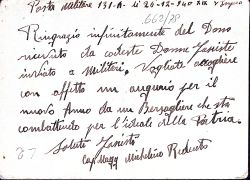 Posta Militare 131-A- li 24-12-940 XIX
662/28
Ringrazio infinitamente del Dono
ricevuto da codeste Donne Fasciste
inviato a Militari. Vogliate accogliere
con affetto un augurio per il
nuovo Anno da un Bersagliere che sta
combattendo per l'ideale della Patria.
Saluti Fascisti
Cap. Magg. Michelino